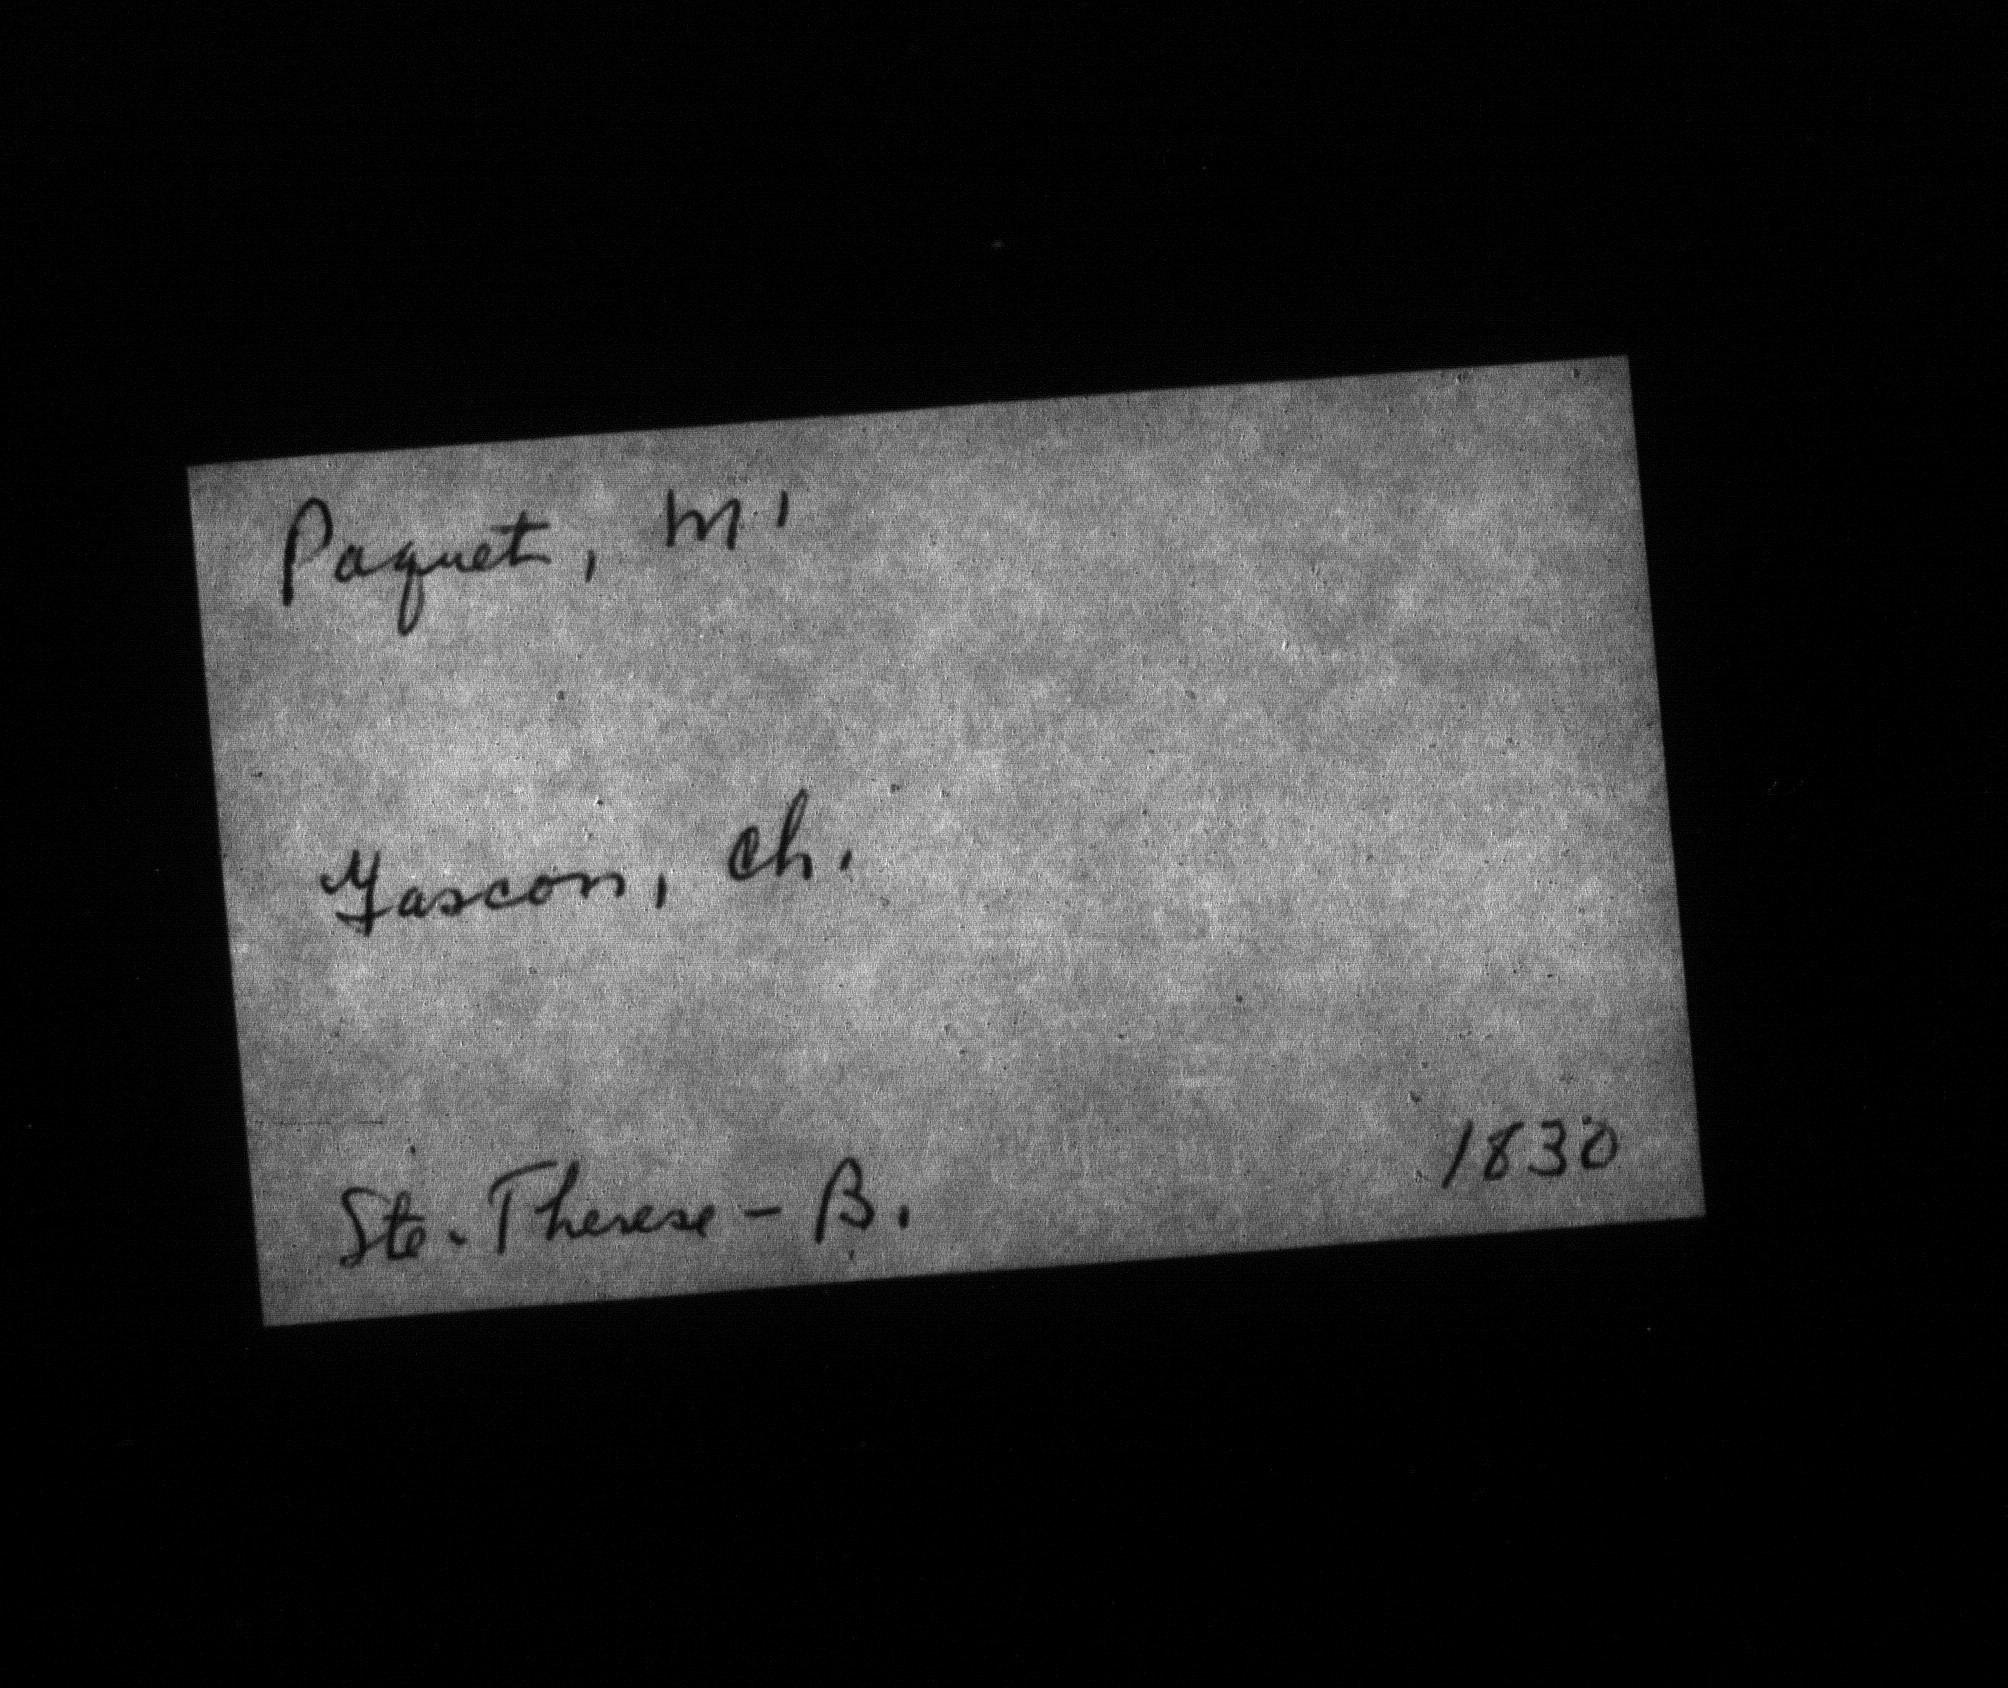 Paquet, M'
Gascon, Ch.
Ste. Therese - B. 1830